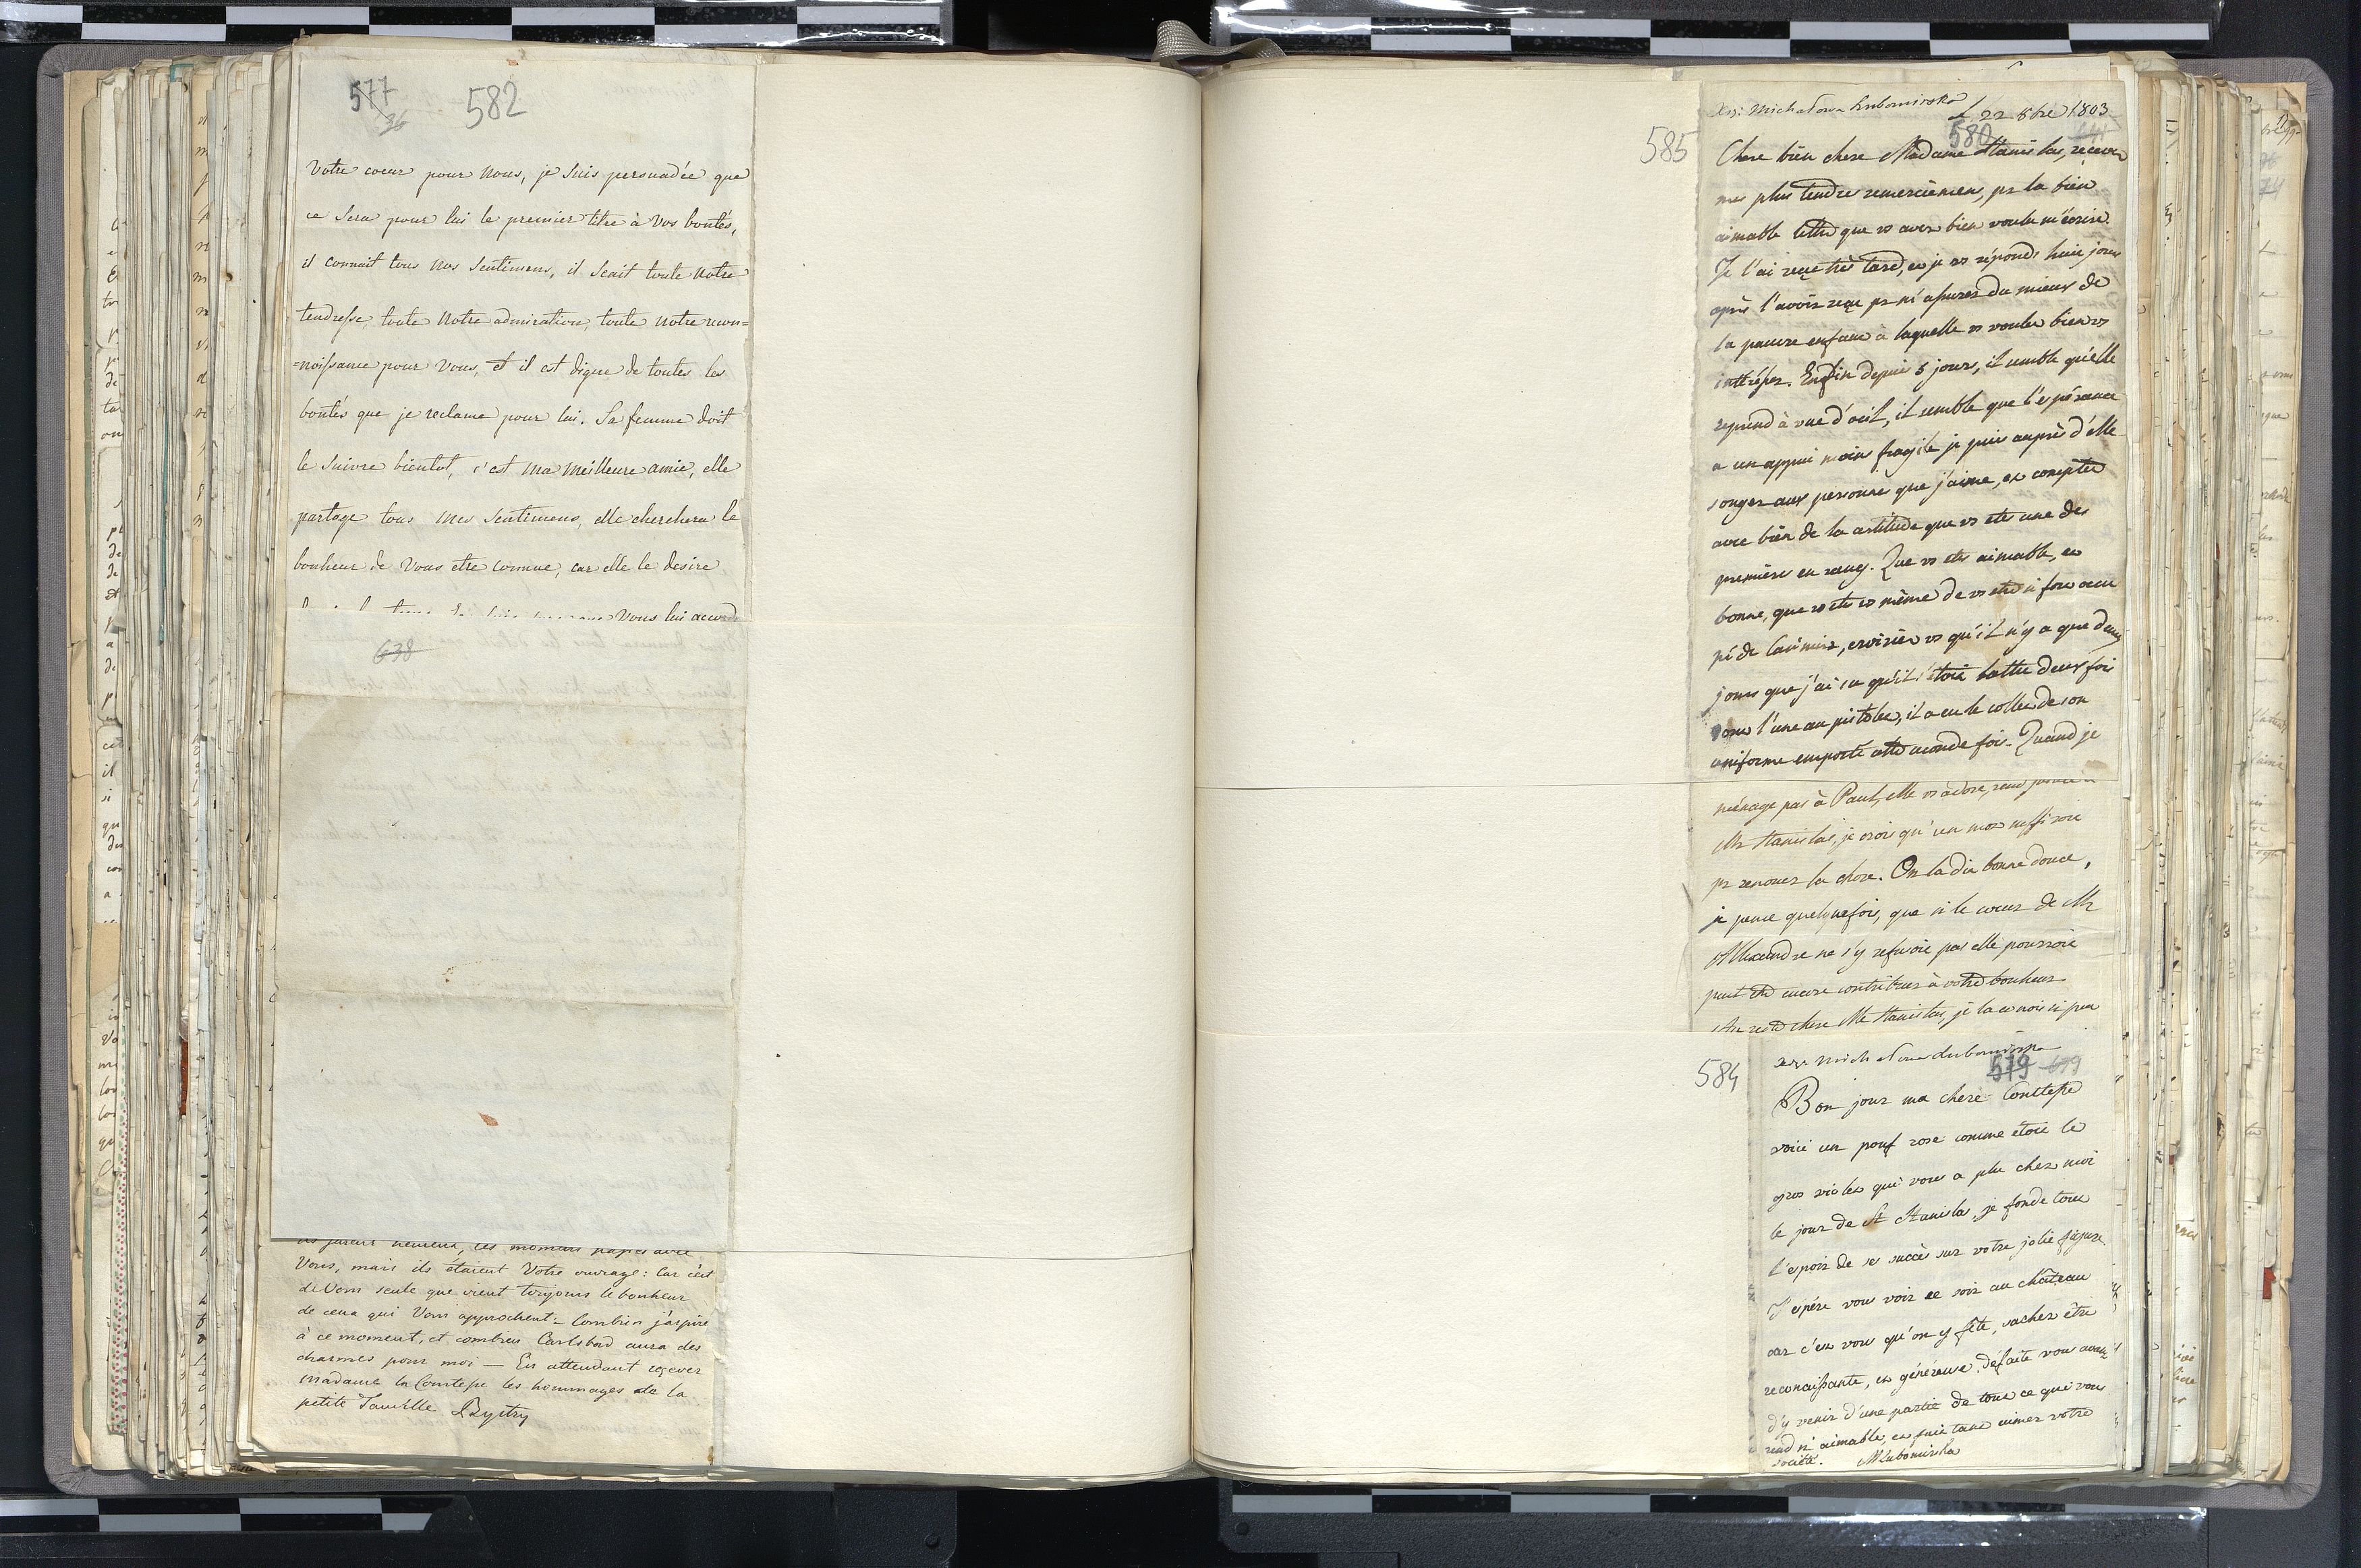 577
36
582
Votre coeur pour nous, je suis persuadée que
ce sera pour lui le premier titre à vos bontés,
il connait tous nos sentimens, il scait toute notre
tendresse, toute notre admiration, toute notre recon=
=noissance pour vous, et il est digne de toutes les
bontés que je reclame pour lui. Sa femme doit
le suivre bientot, c'est ma meilleure amie, elle
partage tous mes sentimens, elle cherchera le
bonheur de vous etre connue, car elle le desire
vous lui accord
638
Vous, mais ils etaient Votre ouvrage: Car c'est
de Vous seule que vient toujours le bonheur
de ceux qui Vous approchent. Combien j'aspire
à ce moment, et combien Carlsbad aura des
charmes pour moi — En attendant recever
Madame la Comtesse les hommages de la
petite famille Bystry
585
Xż: Michałowa Lubomirska
22 8bre 1803
580
Chere bien chere Madame Stanislas, recever
mes plus tendre remerciemens, pr la bien
aimable lettre que vs aver bien voulu m'écrire.
Je l'ai reçue très tard, et je vs réponds huit jours
après l'avoir reçue pr m'assurer du mieux de
la pauvre enfant à laquelle vs vouler bien vs
intéresser. Enfin depuis 5 jours, il semble qu'elle
reprend à vue d'oeil, il semble que l'espérance
a un appui moins fragile je puis auprès d'elle
songer aux personne que j'aime, et compter
avec bien de la certitude que vs etes une des
première en rang. Que vs etes aimable, et
bonne, que vs etes vs même de vs etre si fort occu
pé de Casimir, croirièr vs qu'il n'y a que deux
jours que j'ai su qu'il s'étoit battu deux fois
dont l'une au pistolet, il a eu le collet de son
uniforme emporté cette seconde fois. Quand je
ménage pas à Paul, elle vs adore, rend justice à
Mr Stanislas, je crois qu'un mot suffiroit
pr renouer la chose. On la dit bonne douce,
je pense quelquefois, que si le coeur de Mr
Alexandre ne s'y refusoit pas elle pourroit
peut etre encore contribuer à votre bonheur
Au reste chere Me Stanislas, je la connois si peu
584
Xżn Michałowa Lubomirska
579 639
Bon jour ma chere Comtesse
voici un pouf rose comme étoit le
gros violet qui vous a plu chez moi
le jour de St Stanislas, je fonde tout
l'espoir de ses succès sur votre jolie figure
J'espére vous voir ce soir au château
car c'est vous qu'on y fête, sacher être
reconaissante, et généreuse
d'y venir d'une partie de tout ce qui vous
rend si aimable, et fait tant aimer votre
société. MLubomirska